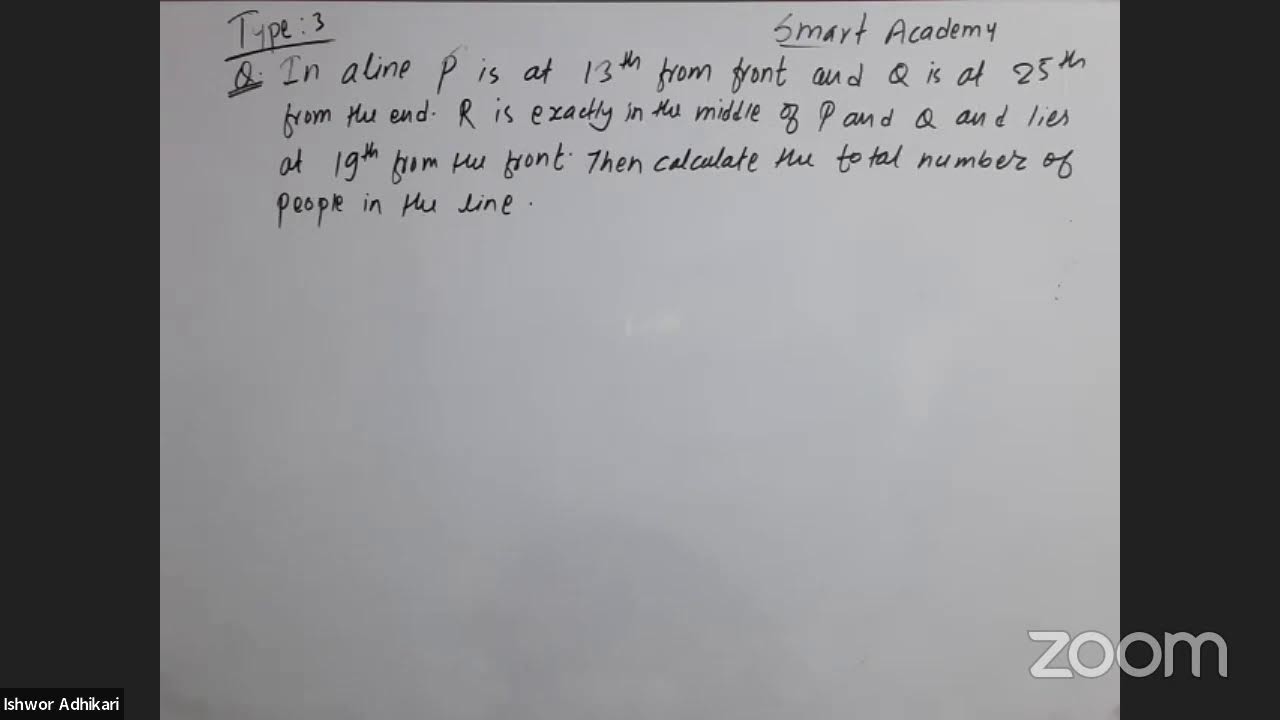 Type: 3
Smart Academy
Q. In a line P is at 13th from front and Q is at 25th
from the end. R is exactly in the middle of P and Q and lies
at 19th from the front. Then calculate the total number of
people in the line.
zoom
Ishwor Adhikari